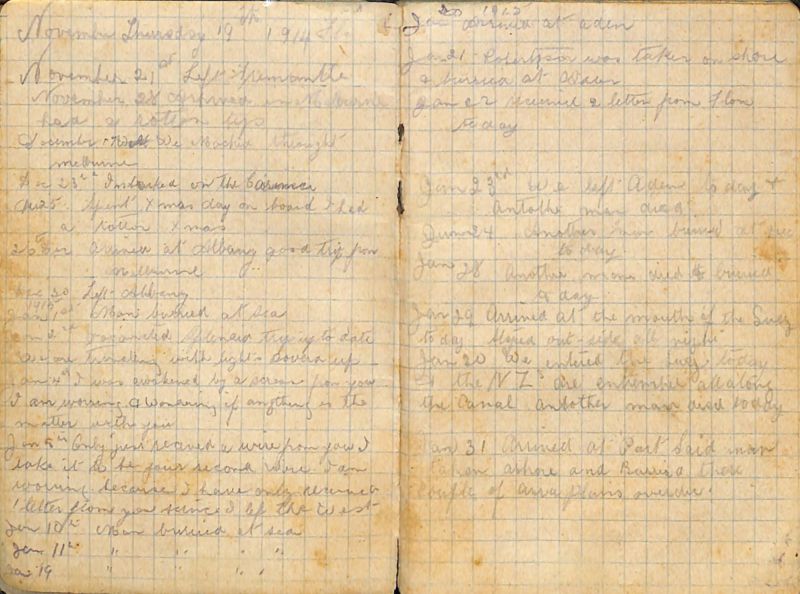 November Thursday 19th 1914
November 21st Left Fremantle
November 28 Arrived in Melbourne
had a rotton
December We Marched throught
melbourne
Dec 23rd Inbarked on the
Dec 25. Spent Xmas day on board & had
a rotton Xmas
26 Dec Arrived at Albany good trip from
melbourne
Dec 30 Left Albany
1915
Jan 1st Man burried at sea
Jan 2nd splended trip up to date
we are traveling with lights coverd up
Jan 4th I was awakened by a scream from you
I am worring & wondering if anything is the
matter with you
Jan 5th Only just recived a wire from you I
take it to be your second wire. I am
worring because I have only received
1 letter from you since I left the West
Jan 10th Man burried at sea
Jan 11th " " " "
Jan 19 " " " "
Jan 20 1915 Arrived at aden
Jan 21 Robertson was taken on shore
& burried at Aden
Jan 22 received 2 letter from Flora
to day
Jan 23rd We left Aden to day &
antother man died
24 Another man burried at sea
to day.
Jan 28 Another man died & burried
to day
Jan 29 Arrived at the mouth of the Suez
to day stayed out-side all night
Jan 30 We entered the Suez today
& the N Z's are entrenched all along
the Canal antother man died today
Jan 31 Arrived at Port Said man
taken ashore and Burried there
couple of overhead.